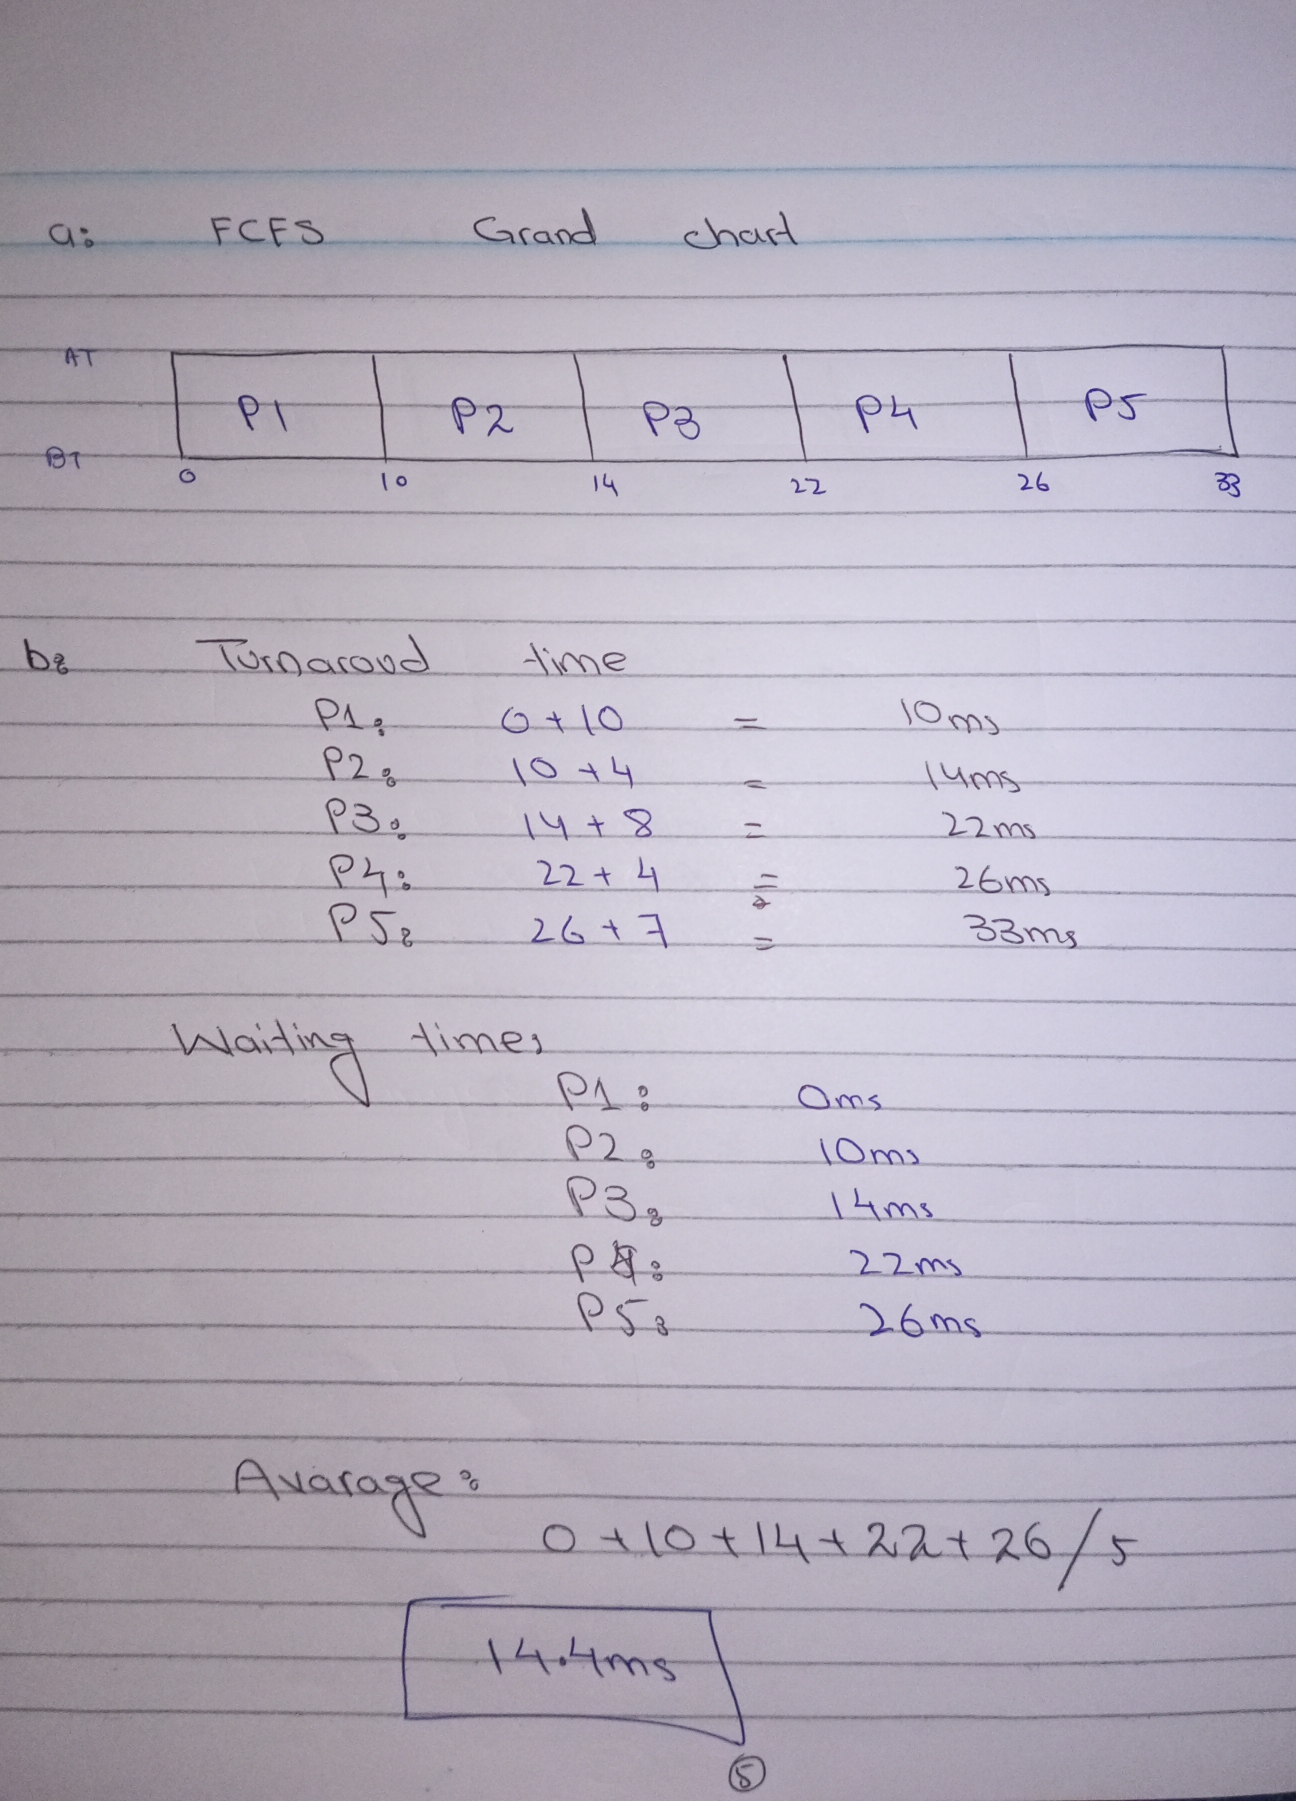 a: FCFS Grand chart
AT
P1 P2 P3 P4 P5
BT
0 10 14 22 26 33
b: Turnaroud time
P1: 0+10 = 10ms
P2: 10+4 = 14ms
P3: 14+8 = 22ms
P4: 22+4 = 26ms
P5: 26+7 = 33ms
Waiting time;
P1: 0ms
P2: 10ms
P3: 14ms
P4: 22ms
P5: 26ms
Avarage:
0+10+14+22+26/5
14.4ms
5